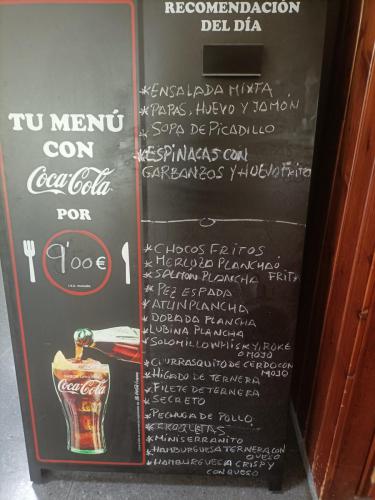 RECOMENDACIÓN
DEL DÍA
TU MENÚ
CON
Coca-Cola
POR
9'00€
I.V.A. incluido
Coca-Cola
*ENSALADA MIXTA
*PAPAS, HUEVO Y JAMÓN
*SOPA DE PICADILLO
*ESPINACAS CON
GARBANZOS Y HUEVO frito
*CHOCOS FRITOS
*MERLUZA PLANCHA Ó
FRITA
*SALMON PLANCHA
*PEZ ESPADA
*ATUN PLANCHA
*DORADA PLANCHA
*LUBINA PLANCHA
*SOLOMILLO WHISKY, ROKE
O MOJO
*CHURRASQUITO DE CERDO CON
MOJO
*HIGADO DE TERNERA
*FILETE DE TERNERA
*SECRETO
*PECHUGA DE POLLO
*CROQUETAS
*MINISERRANITO
*HAMBURGUESA TERNERA CON
QUESO
*HAMBURGUESA CRISPY
CON QUESO